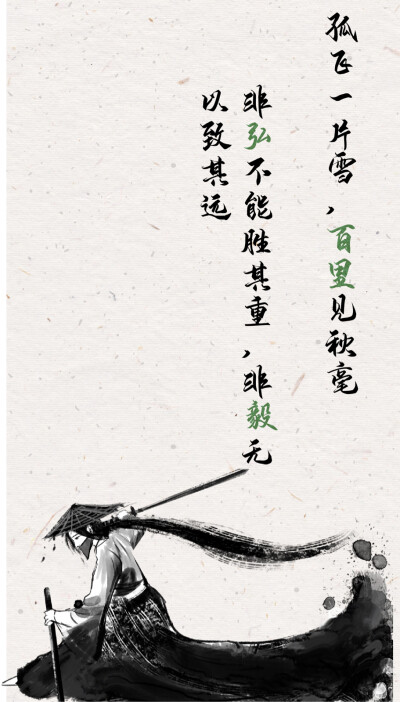 孤飞一片雪,百里见秋毫
非弘不能胜其重,非毅无
以致其远